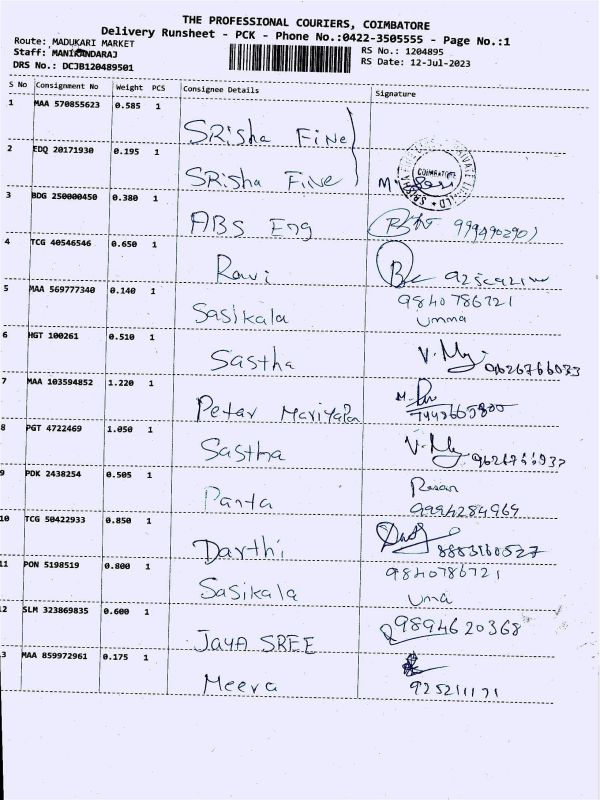 THE PROFESSIONAL COURIERS, COIMBATORE
Delivery Runsheet - PCK - Phone No.:0422-3505555 - Page No.:1
Route: MADUKARI MARKET
Staff: MANIKANDARAJ
DRS No.: DCJB120489501
RS No.: 1204895
RS Date: 12-Jul-2023
S No Consignment No Weight PCS Consignee Details Signature
1 MAA 570855623 0.585 1
SRisha Fine
2 EDQ 20171930 0.195 1
SRisha Fine
COIMBATORE
3 BDG 250000450 0.380 1
ABS Eng
4 TCG 40546546 0.650 1
Ravi
5 MAA 569777340 0.140 1
Sasikala 9840786721
Umma
6 HGT 100261 0.510 1
Sastha V. 9626766033
7 MAA 103594852 1.220 1
Petar Mariyalan
8 PGT 4722469 1.050 1
Sastha
9 PDK 2438254 0.505 1
Panta
9994284969
10 TCG 50422933 0.850 1
Darthi 8883160527
11 PON 5198519 0.800 1
Sasikala 9840786721
Uma
12 SLM 323869835 0.600 1
JAYA SREE 9894620368
3 MAA 859972961 0.175 1
Meera